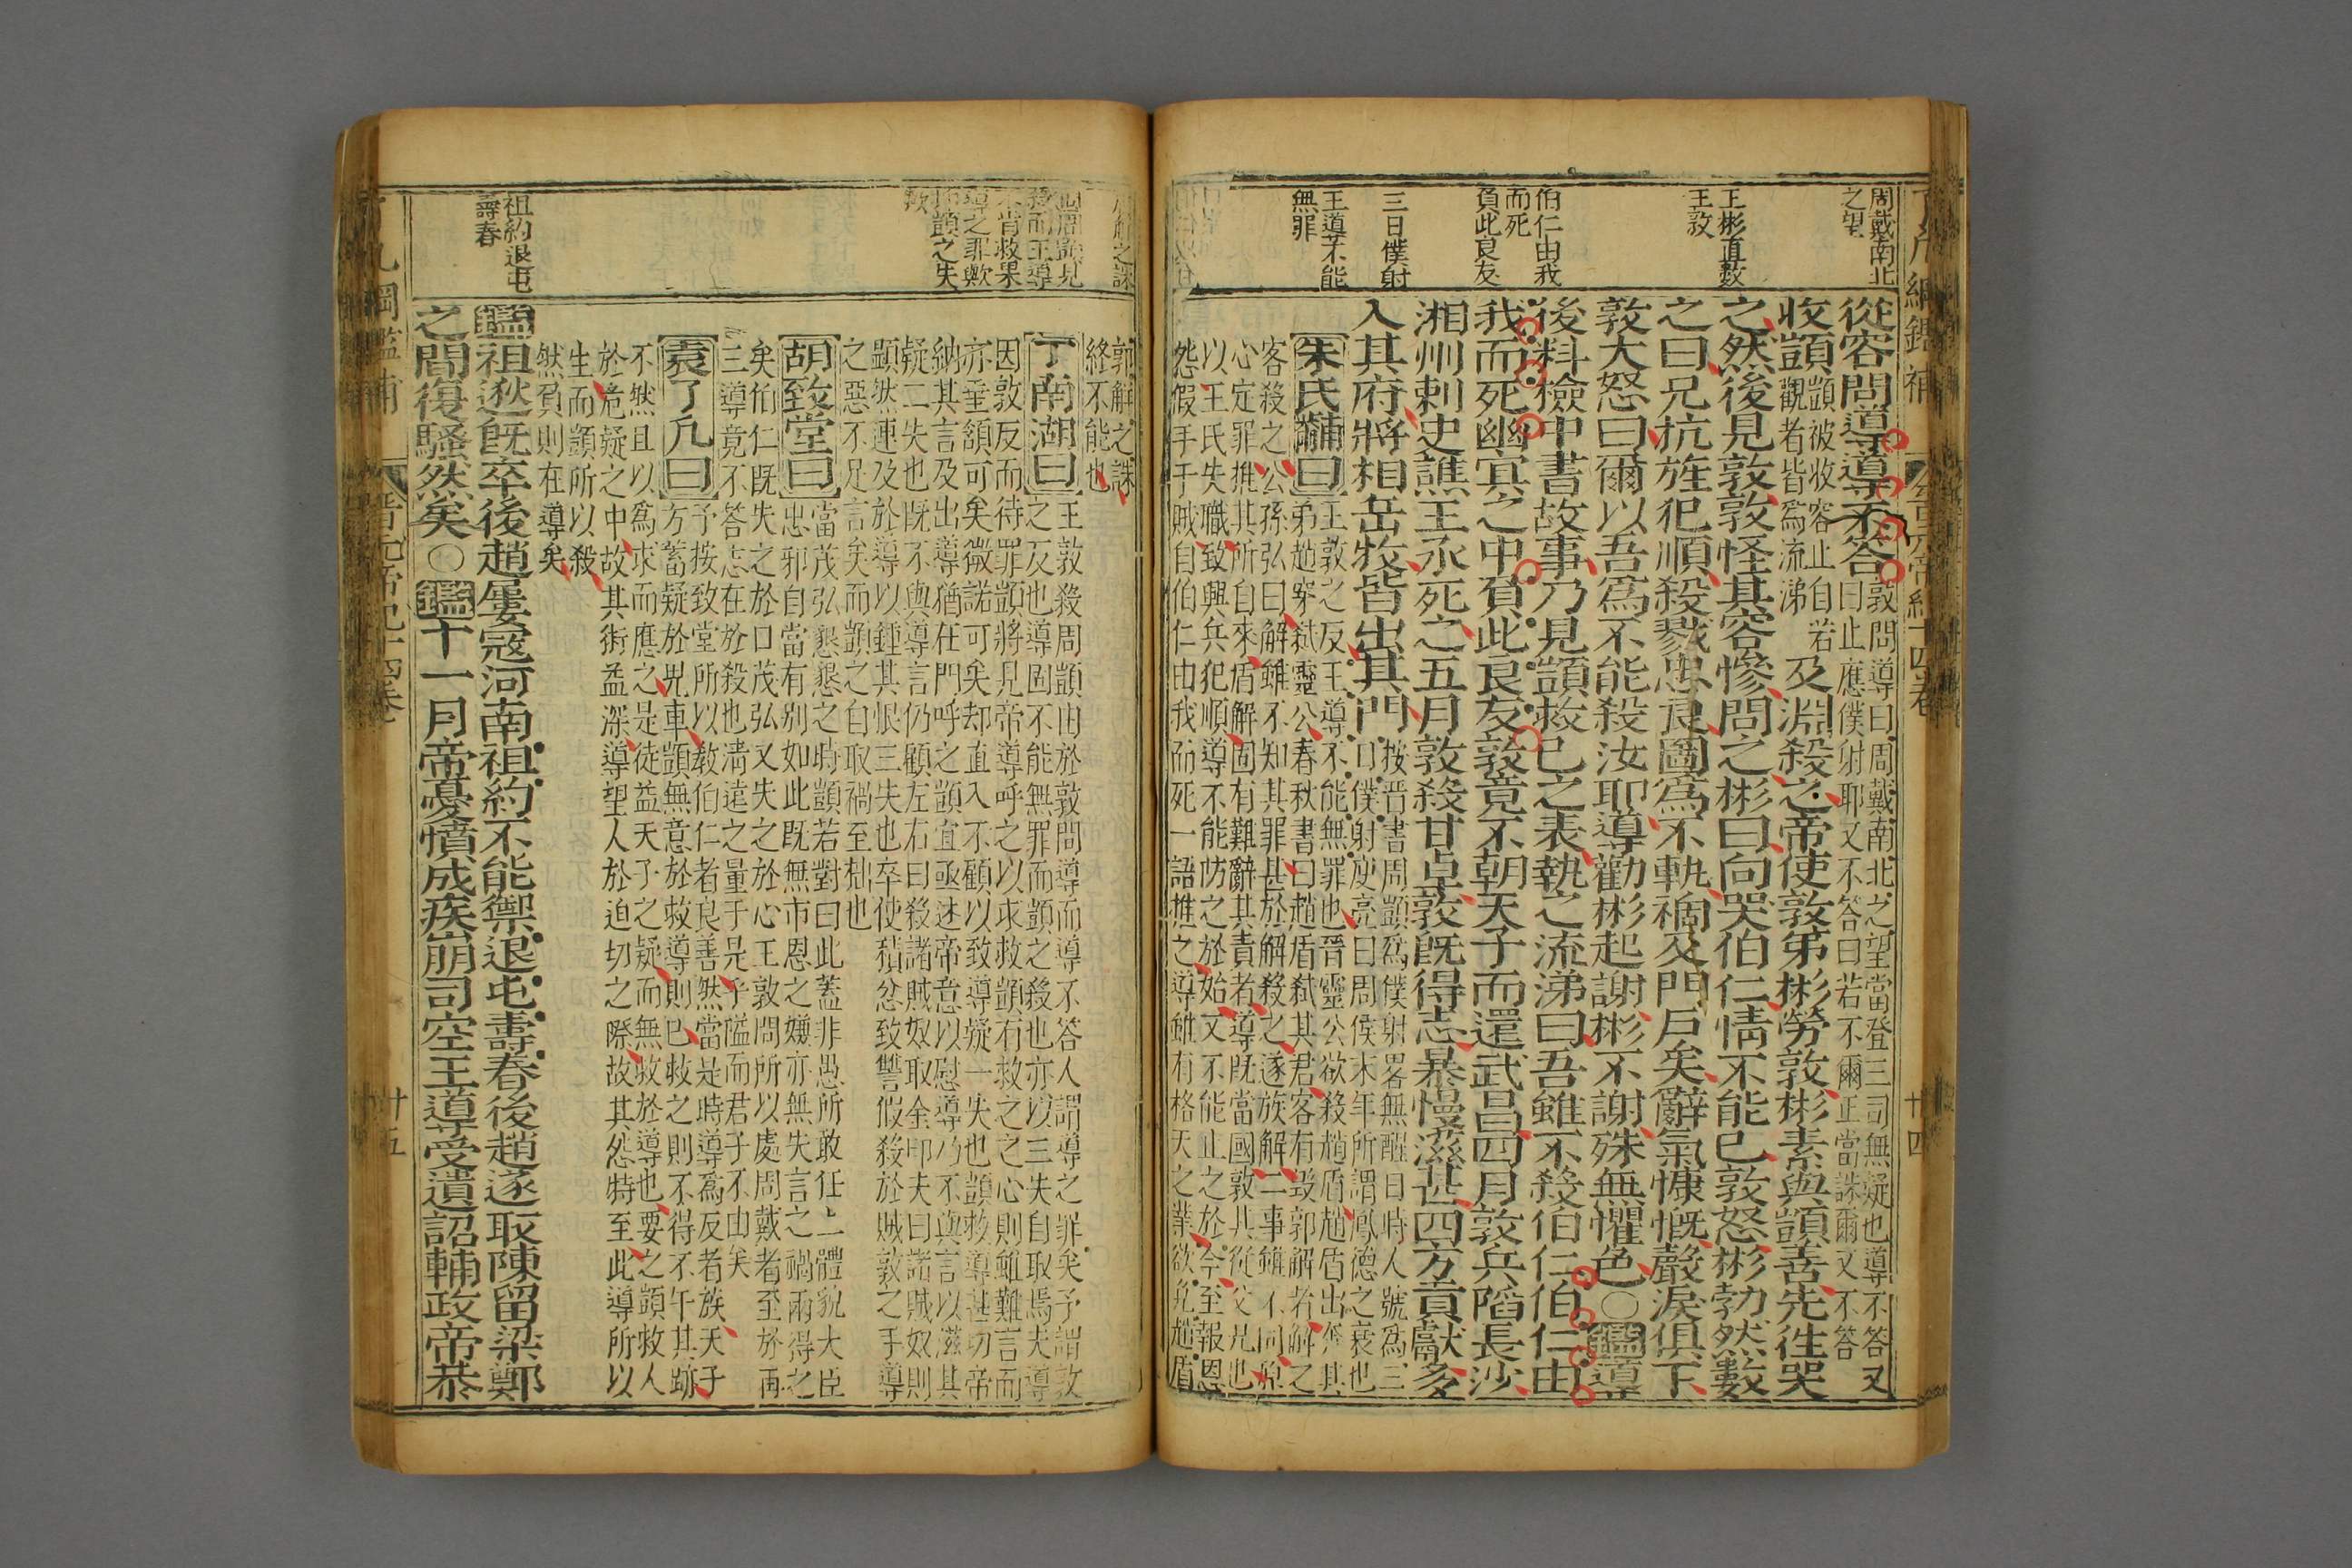 周戴南北
之望
王彬直數
王敦
伯仁由我
而死
負此良友
三日僕射
王導不能
無罪
從容問導導不答敦問導曰周戴南北之望當登三司無疑也導不答又
曰止應僕射耶又不答曰若不爾正當誅爾又不答
收顗顗被收容止自若
觀者皆為流涕及淵殺之帝使敦弟彬勞敦彬素與顗善先往哭
之然後見敦敦怪其容慘問之彬曰向哭伯仁情不能已敦怒彬勃然數
之曰兄抗旌犯順殺戮忠良圖爲不軌禍及門戶矣辭氣慷慨聲淚俱下
敦大怒曰爾以吾爲不能殺汝耶導勸彬起謝彬不謝殊無懼色○鑑導
後料檢中書故事乃見顗救已之表執之流涕曰吾雖不殺伯仁伯仁由
我而死幽冥之中負此良友敦竟不朝天子而還武昌四月敦兵陷長沙
湘州刺史譙王氶死之五月敦殺甘卓敦旣得志暴慢滋甚四方貢獻多
入其府將相岳牧皆出其門按晋書周顗爲僕射畧無醒日時人號爲三
日僕射庾亮曰周侯末年所謂鳳德之衰也
朱氏黼曰王敦之反王導不能無罪也晉靈公欲殺趙盾趙盾出奔其
弟趙穿弑靈公春秋書曰趙盾弑其君客有毀郭解者解之
客殺之公孫弘曰解雖不知其罪甚於解殺之遂族解二事雖不同原
心定罪推其所自來盾解固有難辭其責者導旣當國敦其從父兄也
以王氏失職致興兵犯順導不能防之於始又不能止之於今至報恩
怨假手于賊自伯仁由我而死一語推之導雖有格天之業欲免趙盾
郭解之誅
不肯救果
導之罪歟
抑顗之失
歟
祖約退屯
壽春
郭解之誅
終不能也
丁南湖曰王敦殺周顗由於敦問導而導不答人謂導之罪矣予謂敦
之反也導固不能無罪而顗之殺也亦以三失自取焉夫導
因敦反而待罪顗將見帝導呼之以求救顗有救之之心則雖難言而
亦垂頷可矣微諾可矣却直入不顧以致導疑一失也顗救導甚切帝
納其言及出導猶在門呼之顗宜亟述帝意以慰導乃不與言以滋其
疑二失也既不與導言仍顧左右曰殺諸賊奴取金印夫曰諸賊奴則
顗然連及於導以鍾其恨三失也卒使積忿致讐假殺於賊敦之手導
之惡不足言矣而顗之自取禍至拙也
胡致堂曰當茂弘懇懇之時顗若對曰此蓋非愚所敢任上體貌大臣
忠邪自當有别如此既無市恩之嫌亦無失言之禍兩得之
矣伯仁既失之於口茂弘又失之於心王敦問所以處周戴者至於再
三導竟不答志在於殺也清遠之量于是乎隘而君子不由矣
袁了凡曰予按致堂所以教伯仁者良善然當是時導爲反者族天子
方蓄疑於鬼車顗無意於救導則已救之則不得不午其跡
不然且以爲求而應之是徒益天子之疑而無救於導也要之顗救人
於危疑之中故其術益深導望人於迫切之際故其怨特至此導所以
生而顗所以殺
然負則在導矣
鑑祖逖旣卒後趙屢寇河南祖約不能禦退屯壽春後趙遂取陳留梁鄭
之間復騷然矣○鑑十一月帝憂憤成疾崩司空王導受遺詔輔政帝恭
廿四
廿五